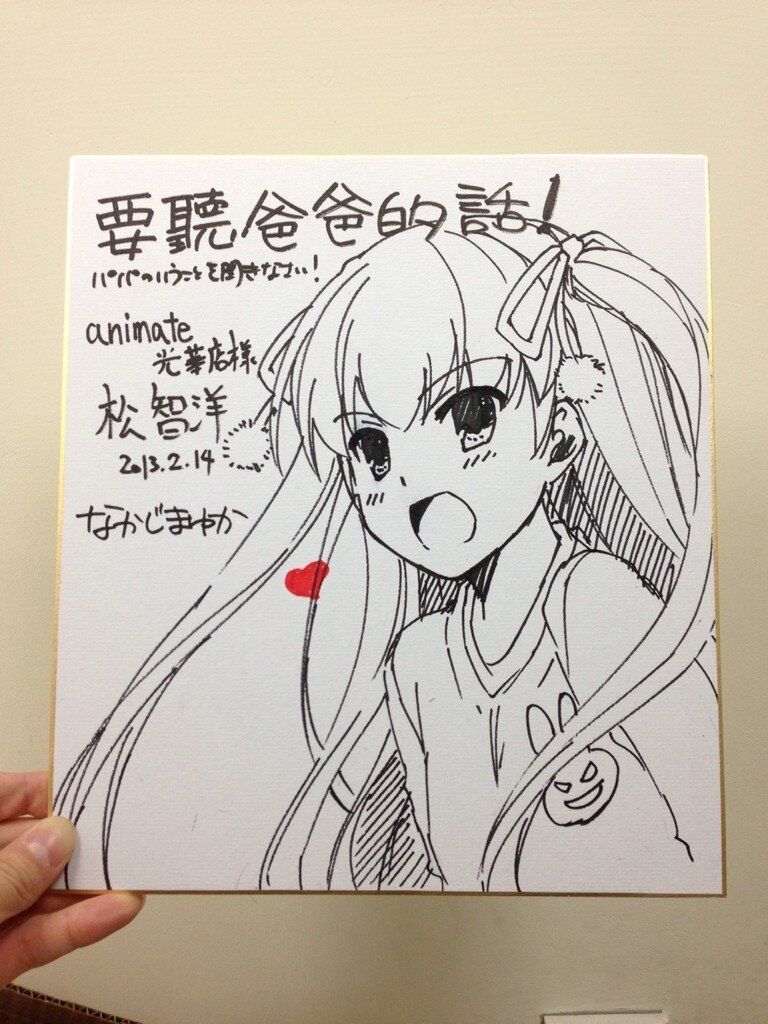 要聽爸爸的話！
パパのいうことを聞きなさい！
animate
光華店様
松智洋
2013.2.14
なかじまゆか